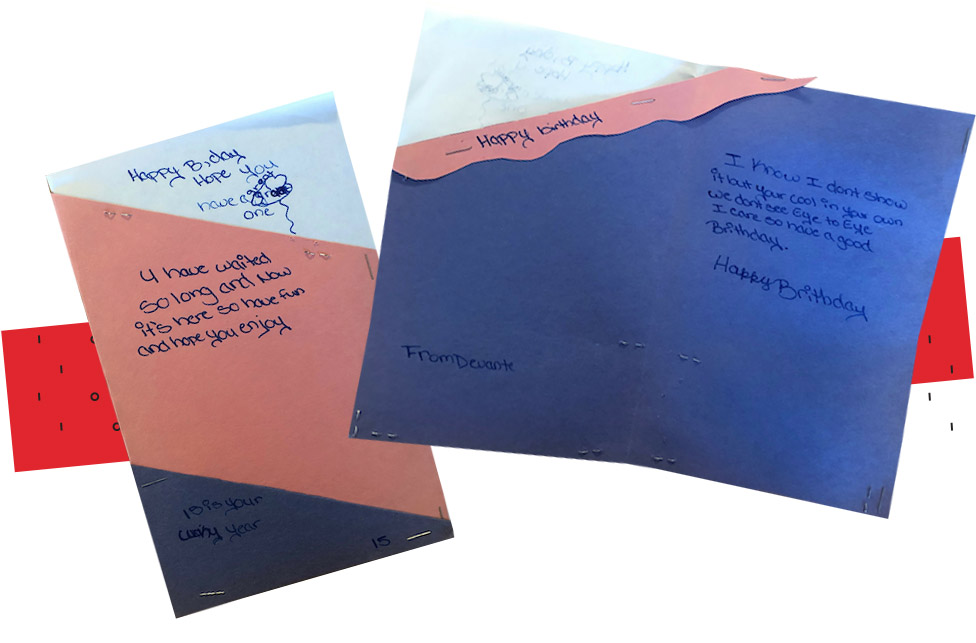 Happy B,day
Hope You
have a great
one
U have waited
so long and Now
it's here so have fun
and hope you enjoy
15 is your
year
15
Happy birthday
I Know I dont show
it but your cool in your own
we dont see Eye to Eye
I care so have a good
Brithday.
Happy Brithday
From Devante